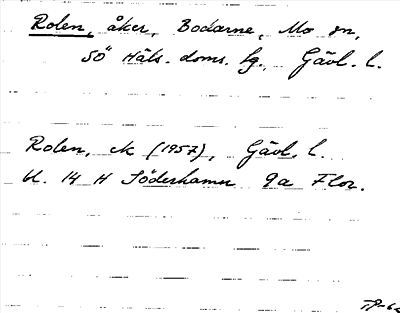 Rolen, åker, Bodarne, Mo sn,
Sö Häls. doms. fg., Gävl. l.
Rolen, ek (1957), Gävl. l.
bl. 14 H Söderhamn 9a Flor.